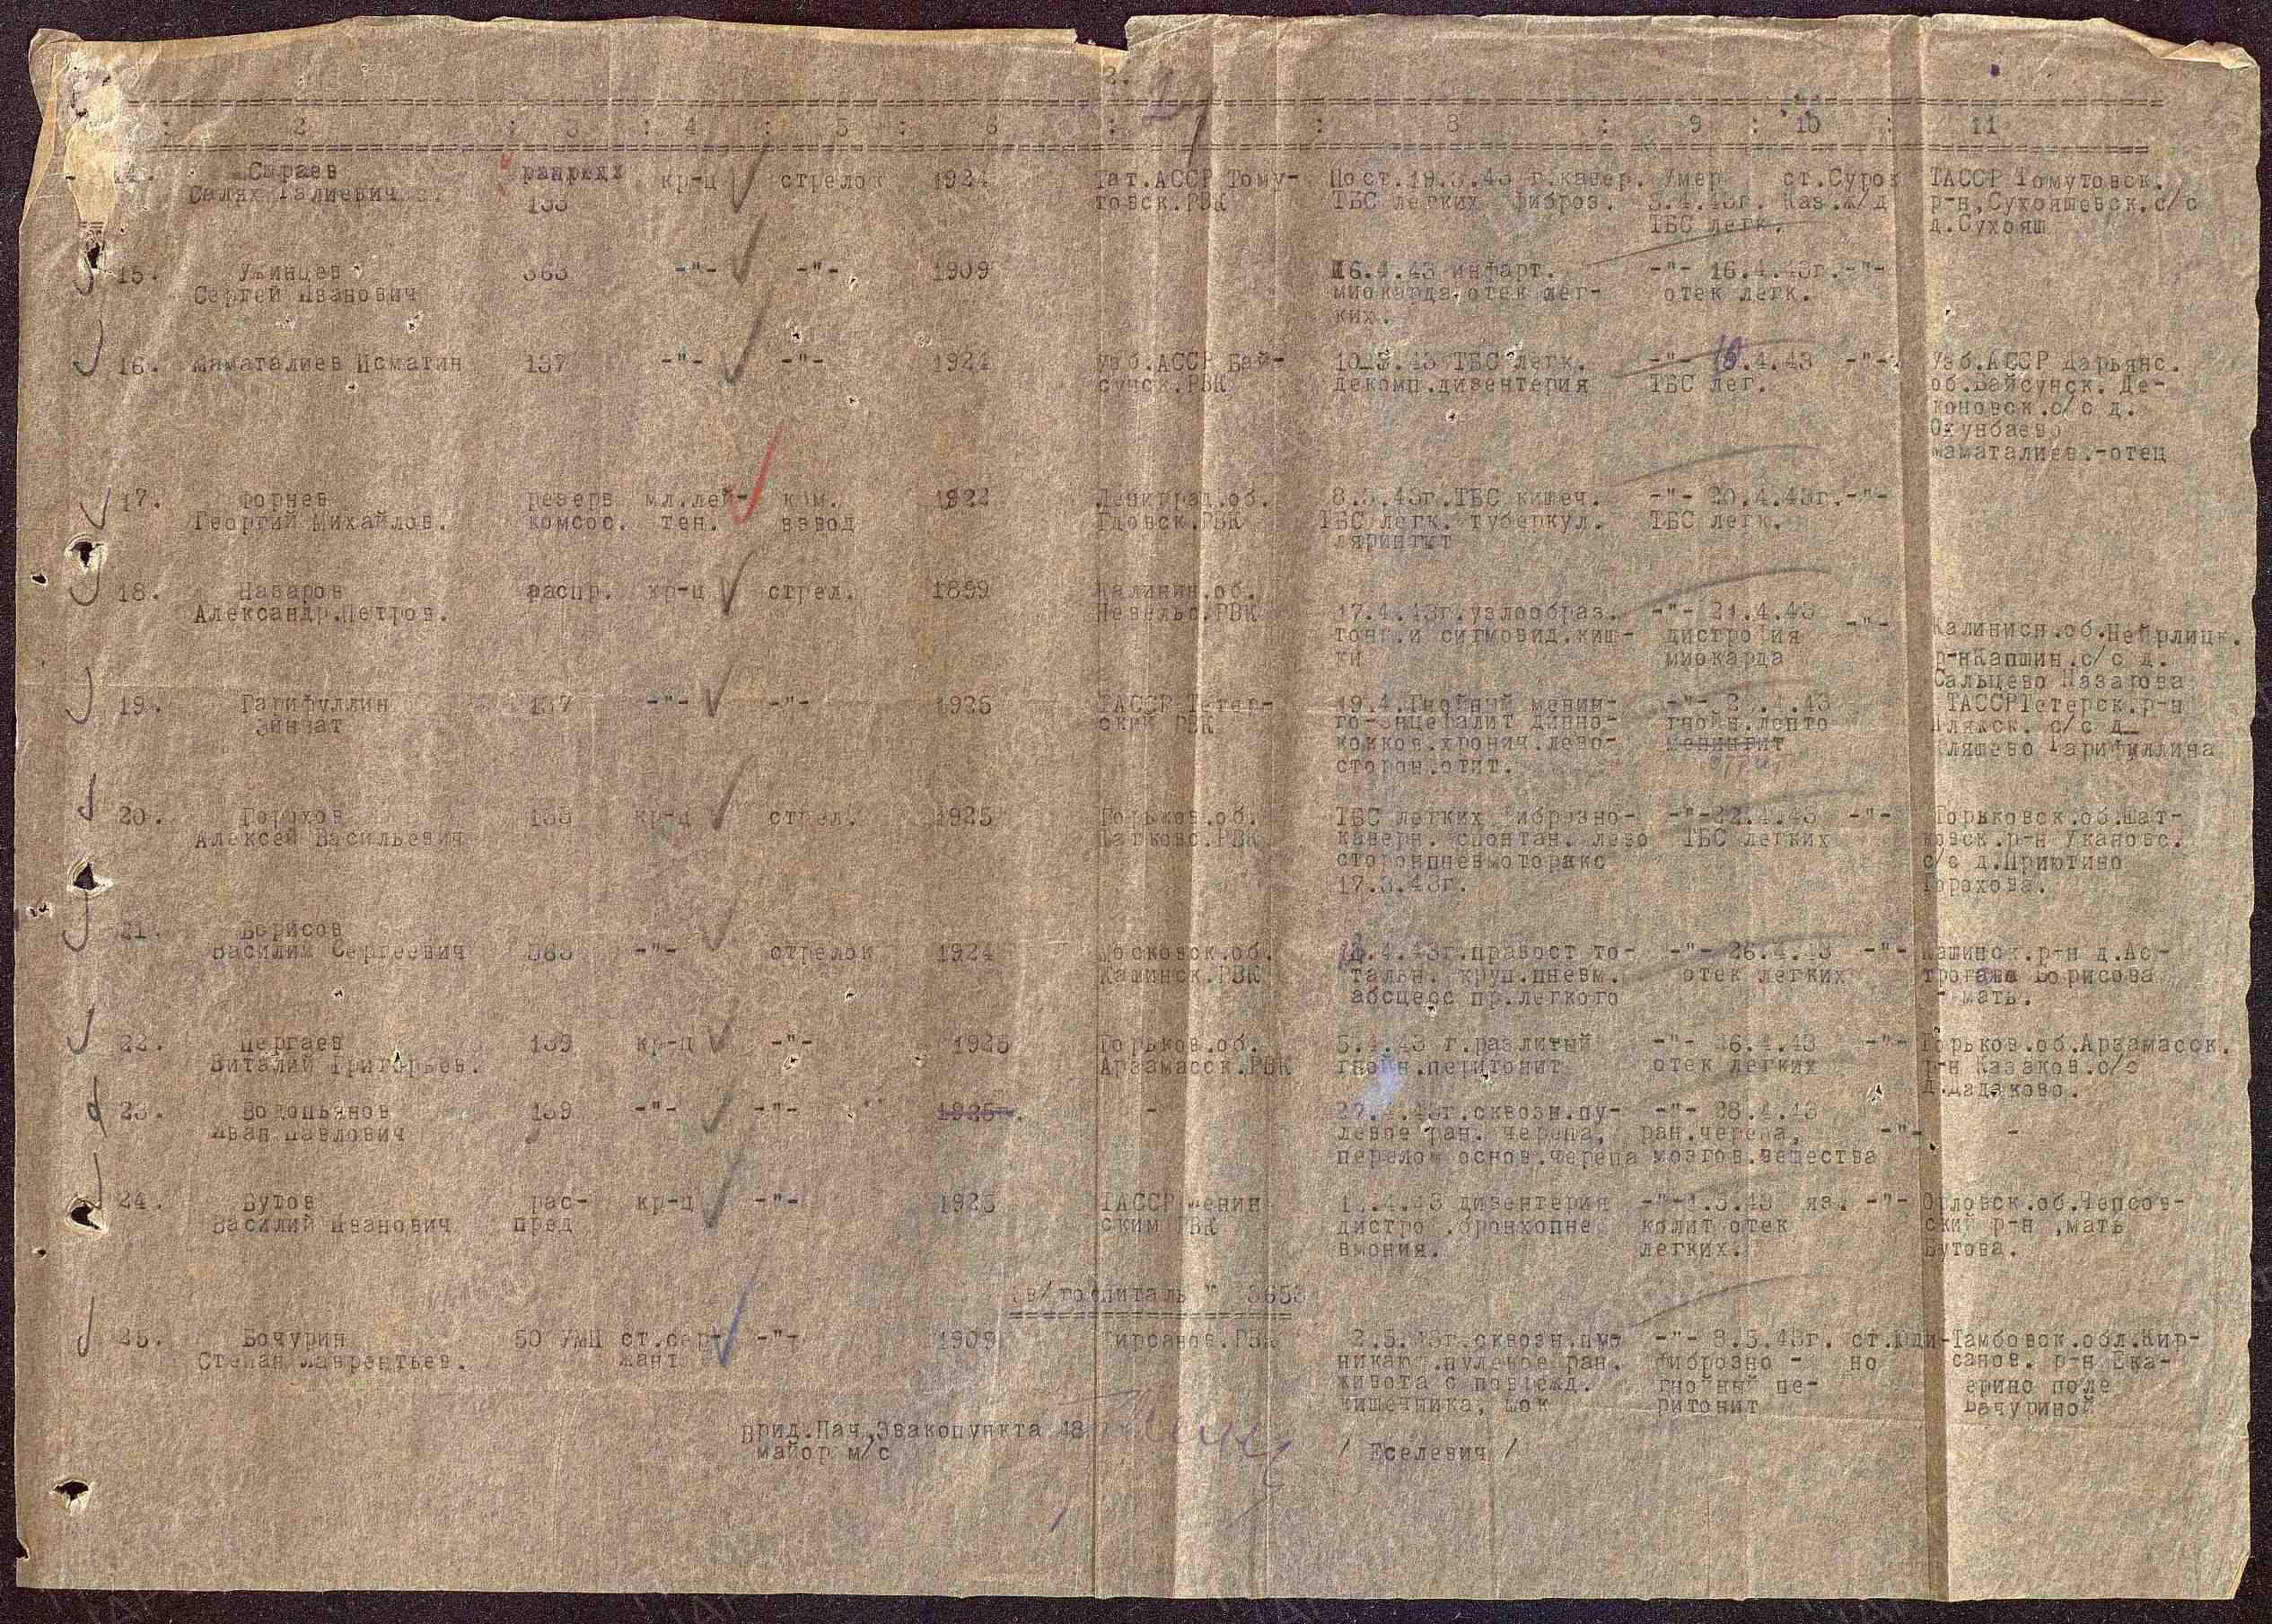 2.
2 : 3 : 4 : 5 : 6 : : 8 : 9 : 10 : 11
Сыраев кр-ц стрелок 1924 Тат.АССР Тому- Пост.19.3.43 г.кавер. Умер ст.Сурок ТАССР Томутовск.
Салях Галиевич 133 товск.РВК ТБС легких фиброз. 3.4.43г. Каз.ж/д р-н,Сухояшевск.с/с
ТБС легк. д.Сухояш
15. Ужинцев 363 -"- -"- 1909 16.4.43 инфарт. -"- 16.4.43г.-"-
Сергей Иванович миокарда,отек лег- отек легк.
ких.
16. Маматалиев Исматин 137 -"- -"- 1924 Узб.АССР Бай- 10.3.43 ТБС легк. -"- .4.43 -"- Узб.АССР Дарьянс.
сунск.РВК декомп.дизентерия ТБС лег. об.Байсунск. Де-
коновск.с/с д.
Окунбаево
Маматалиев.-отец
17. Форнев резерв мл.лей- ком. 1922 Ленинград.об. 8.3.43г.ТБС кишеч. -"- 20.4.43г.-"-
Георгий Михайлов. комсос. тен. взвод Гдовск.РВК ТБС легк. туберкул. ТБС легк.
лярингит
18. Назаров распр. кр-ц стрел. 1899 Калинин.об.
Александр.Петров. Невельс.РВК 17.4.43г.узлообраз. -"- 21.4.43 -"- Калинисн.об.Нейрлицк.
тонк.и сигмовид.киш- дистрофия р-нКапшин.с/с д.
ки миокарда Сальцево Назарова
19. Гарифуллин 137 -"- -"- 1925 ТАССР Тетер- 19.4.Гнойный менин- -"- .4.43 ТАССРТетерск.р-н
ский РВК го-энцефалит гнойн.лепто с/с д.
коков.хронич.лево- менингит Кляшево Гарифуллина
сторон.отит.
20. Горохов 133 кр-ц стрел. 1925 Горьков.об. ТБС легких фиброзно- -"-22.4.43 -"- Горьковск.об.Шат-
Алексей Васильевич Шатковс.РВК каверн. спонтан. лево ТБС легких ковск.р-н Укановс.
сторонпневмоторакс с/с д.Приютино
17.3.43г. Горохова.
21. Борисов
Василий Сергеевич 363 -"- стрелок 1924 Московск.об. .4.43г.правост то- -"- 26.4.43 -"- Кашинск.р-н д.Ас-
Кашинск.РВК тальн. круп.пневм. отек легких Борисова
абсцесс пр.легкого - мать.
22. Пергаев 139 кр-ц -"- 1925 Горьков.об. 5.4.43 г.разлитый -"- 26.4.43 -"- Горьков.об.Арзамасск.
Виталий Григорьев. Арзамасск.РВК гнойн.перитонит отек легких р-н Казаков.с/с
23. Водопьянов 139 -"- -"- 1925г. - 27.4.43г.сквозн.пу- -"- 28.4.43
Иван Павлович левое ран. черепа, ран.черепа, -"- -
перелом основ.черепа мозгов.вещества
24. Бутов рас- кр-ц -"- 1925 ТАССР Ленин .4.43 дизентерия -"-1.5.43 яз. -"- Орловск.об.Чепсов-
Василий Иванович пред ским РВК дистроф.бронхопне колит отек ский р-н ,мать
вмония. легких. Бутова.
Эв/госпиталь № 3653
25. Бочурин 50 УМП ст.сер- -"- 1909 Кирсанов.РВК 2.5.43г.сквозн.про -"- 3.5.43г. ст.Юди- Тамбовск.обл.Кир-
Степан Лаврентьев. жант никающ.пулевое ран. фиброзно - но санов. р-н Ека-
живота с поврежд. гнойный пе- ерино поле
кишечника, шок ритонит Бачуриной
Врид.Нач.Эвакопункта 48
майор м/с / Еселевич /